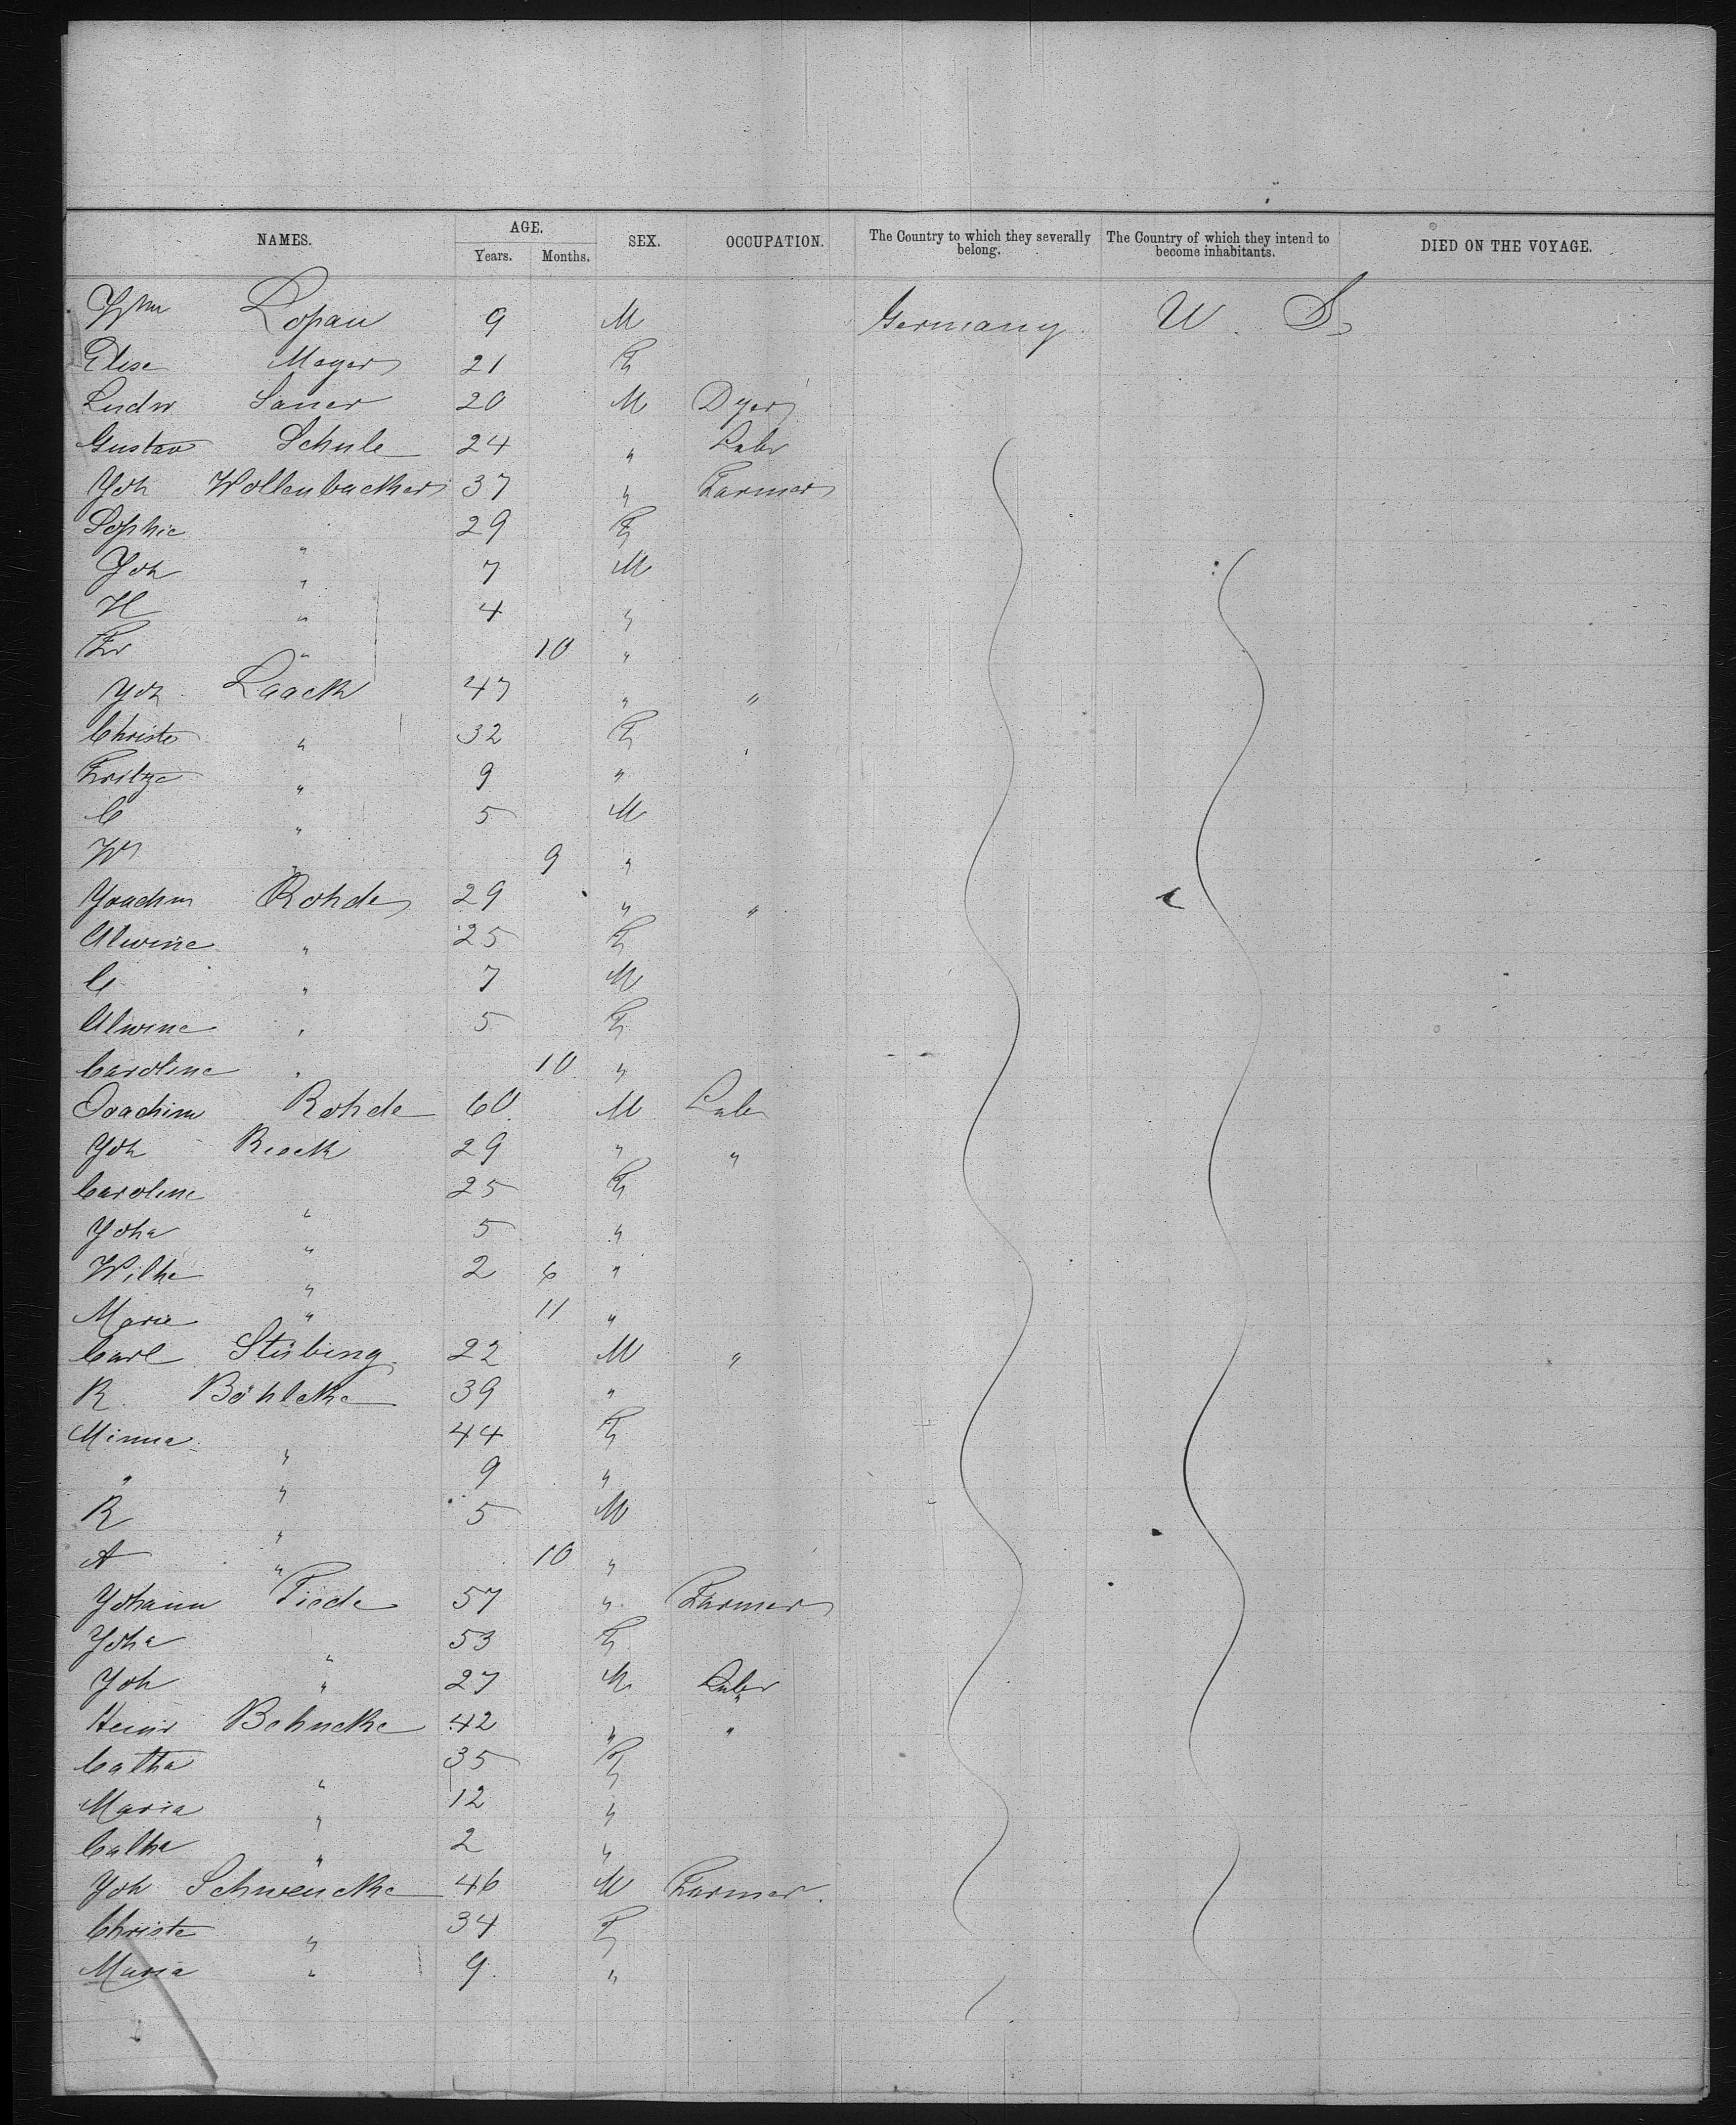 NAMES. AGE. SEX. OCCUPATION. The Country to which they severally belong. The Country of which they intend to become inhabitants. DIED ON THE VOYAGE.
Years. Months.
Wm Lopau 9 M Germany U. S.
Elise Mayer 21 F
Ludw Sauer 20 M Dyer
Gustav Schule 24 " Labr
Joh Wollenbacker 37 " Farmer
Sophie " 29 F
Joh " 7 M
H " 4 "
Fr " 10 "
Joh Laack 47 " "
Christe " 32 F
Fritze " 9 "
C " 5 M
W " 9 "
Joachim Rohde 29 " "
Alwine " 25 F
C " 7 M
Alwine " 5 F
Caroline " 10 "
Joachim Rohde 60 M Labr
Joh Rieck 29 " "
Caroline " 25 F
Joha " 5 "
Wilhe " 2 6 "
Marie " 11 "
Carl Stübing 22 M "
R. Böhlcke 39 "
Minna " 44 F
" " 9 "
R " 5 M
A " 10 "
Johann Tiede 57 " Farmer
Joha " 53 F
Joh " 27 M Labr
Heinr Behncke 42 " "
Catha " 35 F
Maria " 12 "
Catha " 2 "
Joh Schwencke 46 M Farmer.
Christe " 34 F
Maria " 9. "